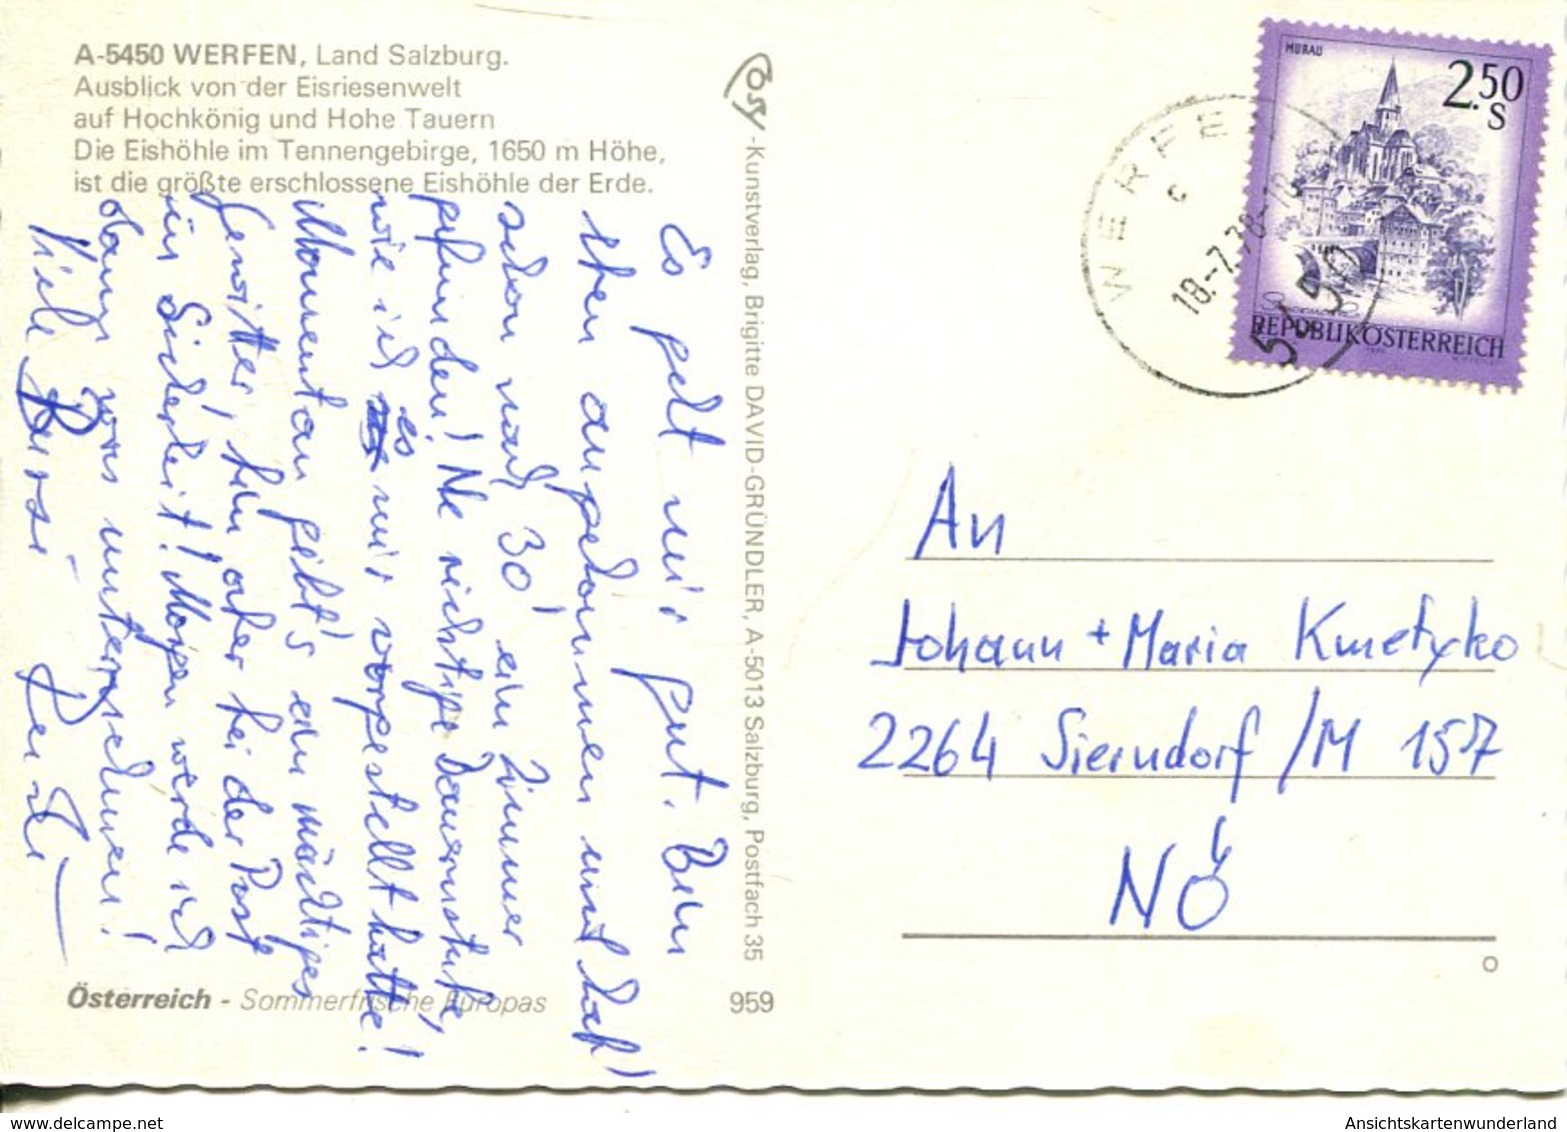 A-5450 WERFEN, Land Salzburg.
Ausblick von der Eisriesenwelt
auf Hochkönig und Hohe Tauern
Die Eishöhle im Tennengebirge, 1650 m Höhe,
ist die größte erschlossene Eishöhle der Erde.
Es geht mir gut. Bin
angekommen und hab'
schon nach 30' ein Zimmer
gefunden! Ne richtige Bauernstube,
wie ich es mir vorgestellt hatte!
Momentan gibt's ein mächtiges
Gewitter, bin aber bei der Post
in Sicherheit! Morgen werde ich
was unternehmen!
Viele Bussi
Österreich - Sommerfrische Europas
959
Cosy-Kunstverlag, Brigitte DAVID-GRÜNDLER, A-5013 Salzburg, Postfach 35
MURAU
2.50
S
REPUBLIK ÖSTERREICH
WERFE
c
18.-7.78-18
5450
An
Johann + Maria Kmetyko
2264 Sierndorf /M 157
NÖ
Ansichtskartenwunderland
www.delcampe.net